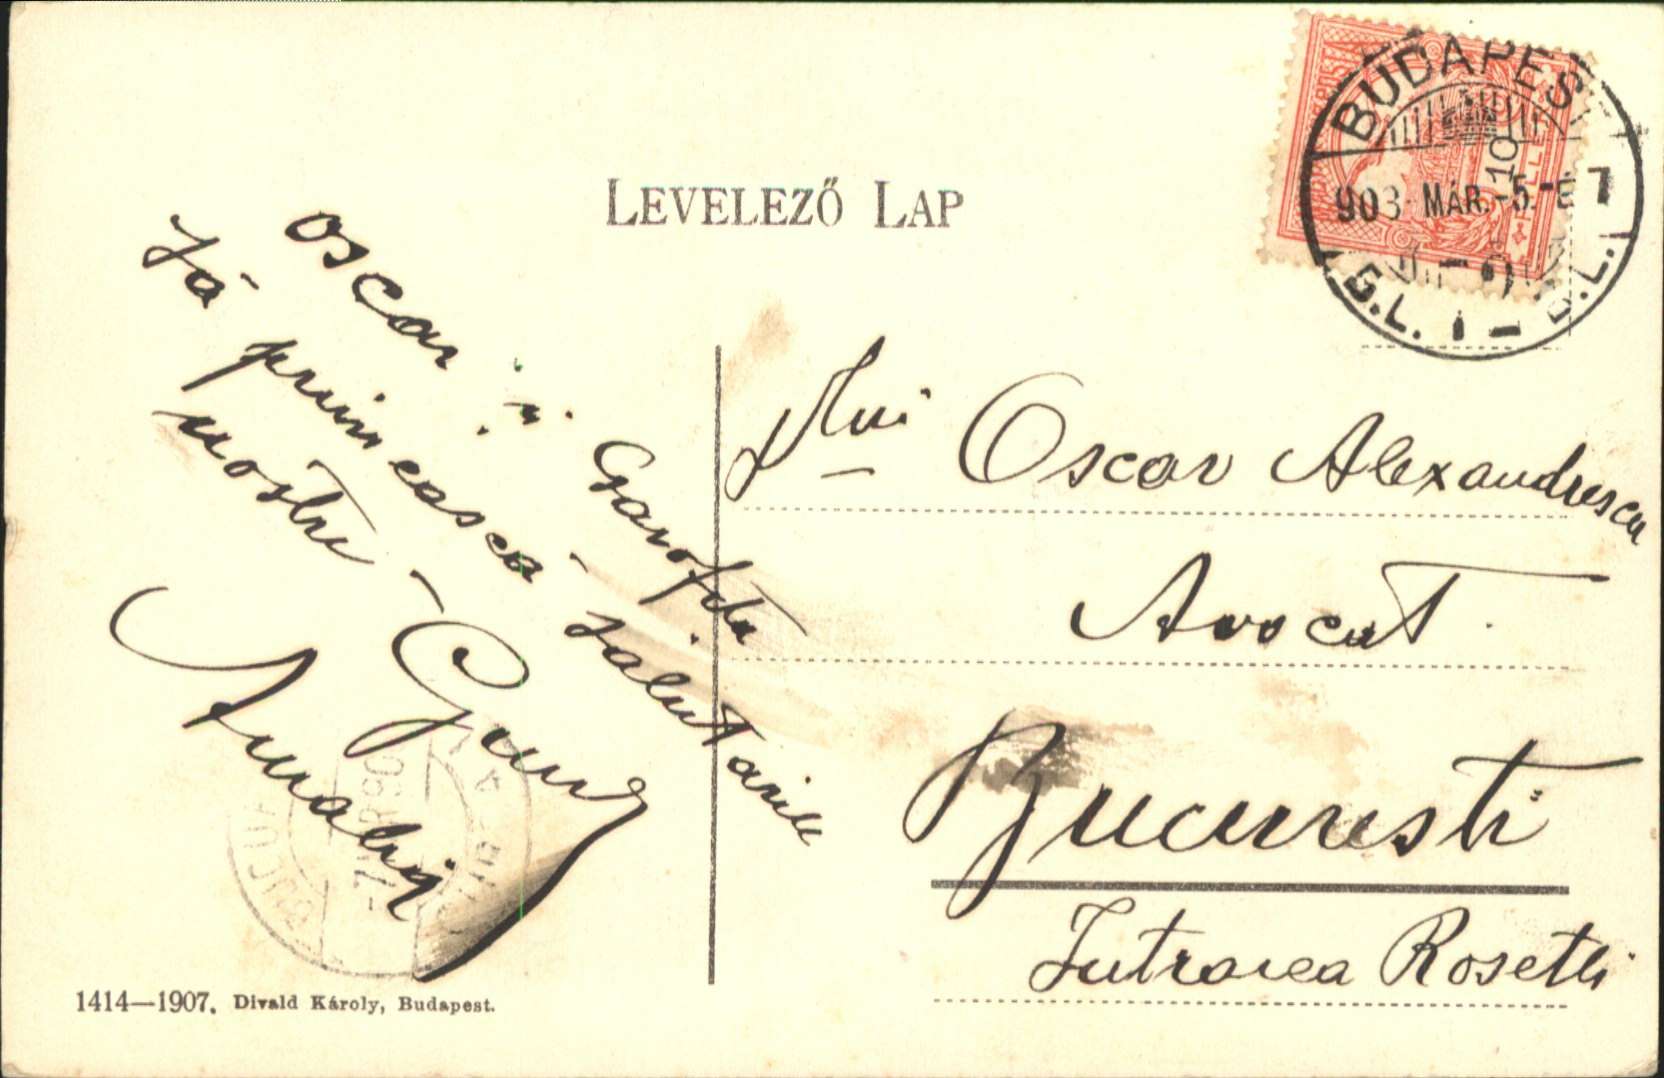 LEVELEZŐ LAP
BUDAPEST
903 MÁR. -5. É 7
10
Oscar și Garofița
să primească salutările
nostre
Amalia
Dlui Oscar Alexandrescu
Avocat
Bucuresti
Intrarea Rosetti
1414—1907. Divald Károly, Budapest.